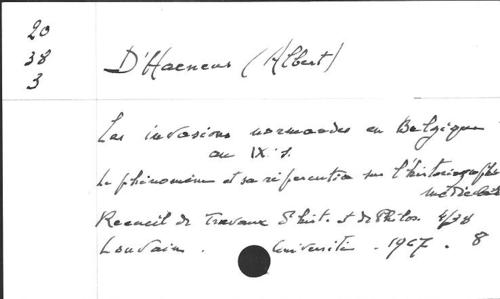 20
38
3
D'Haeneus (Albert)
Les invasions normandes en Belgique
au IX. s.
Le phénomène et sa répercution sur l'historiographie
médiévale
Recueil de Travaux d'hist. et de Philos. 4/38
Louvain. Université. 1967. 8